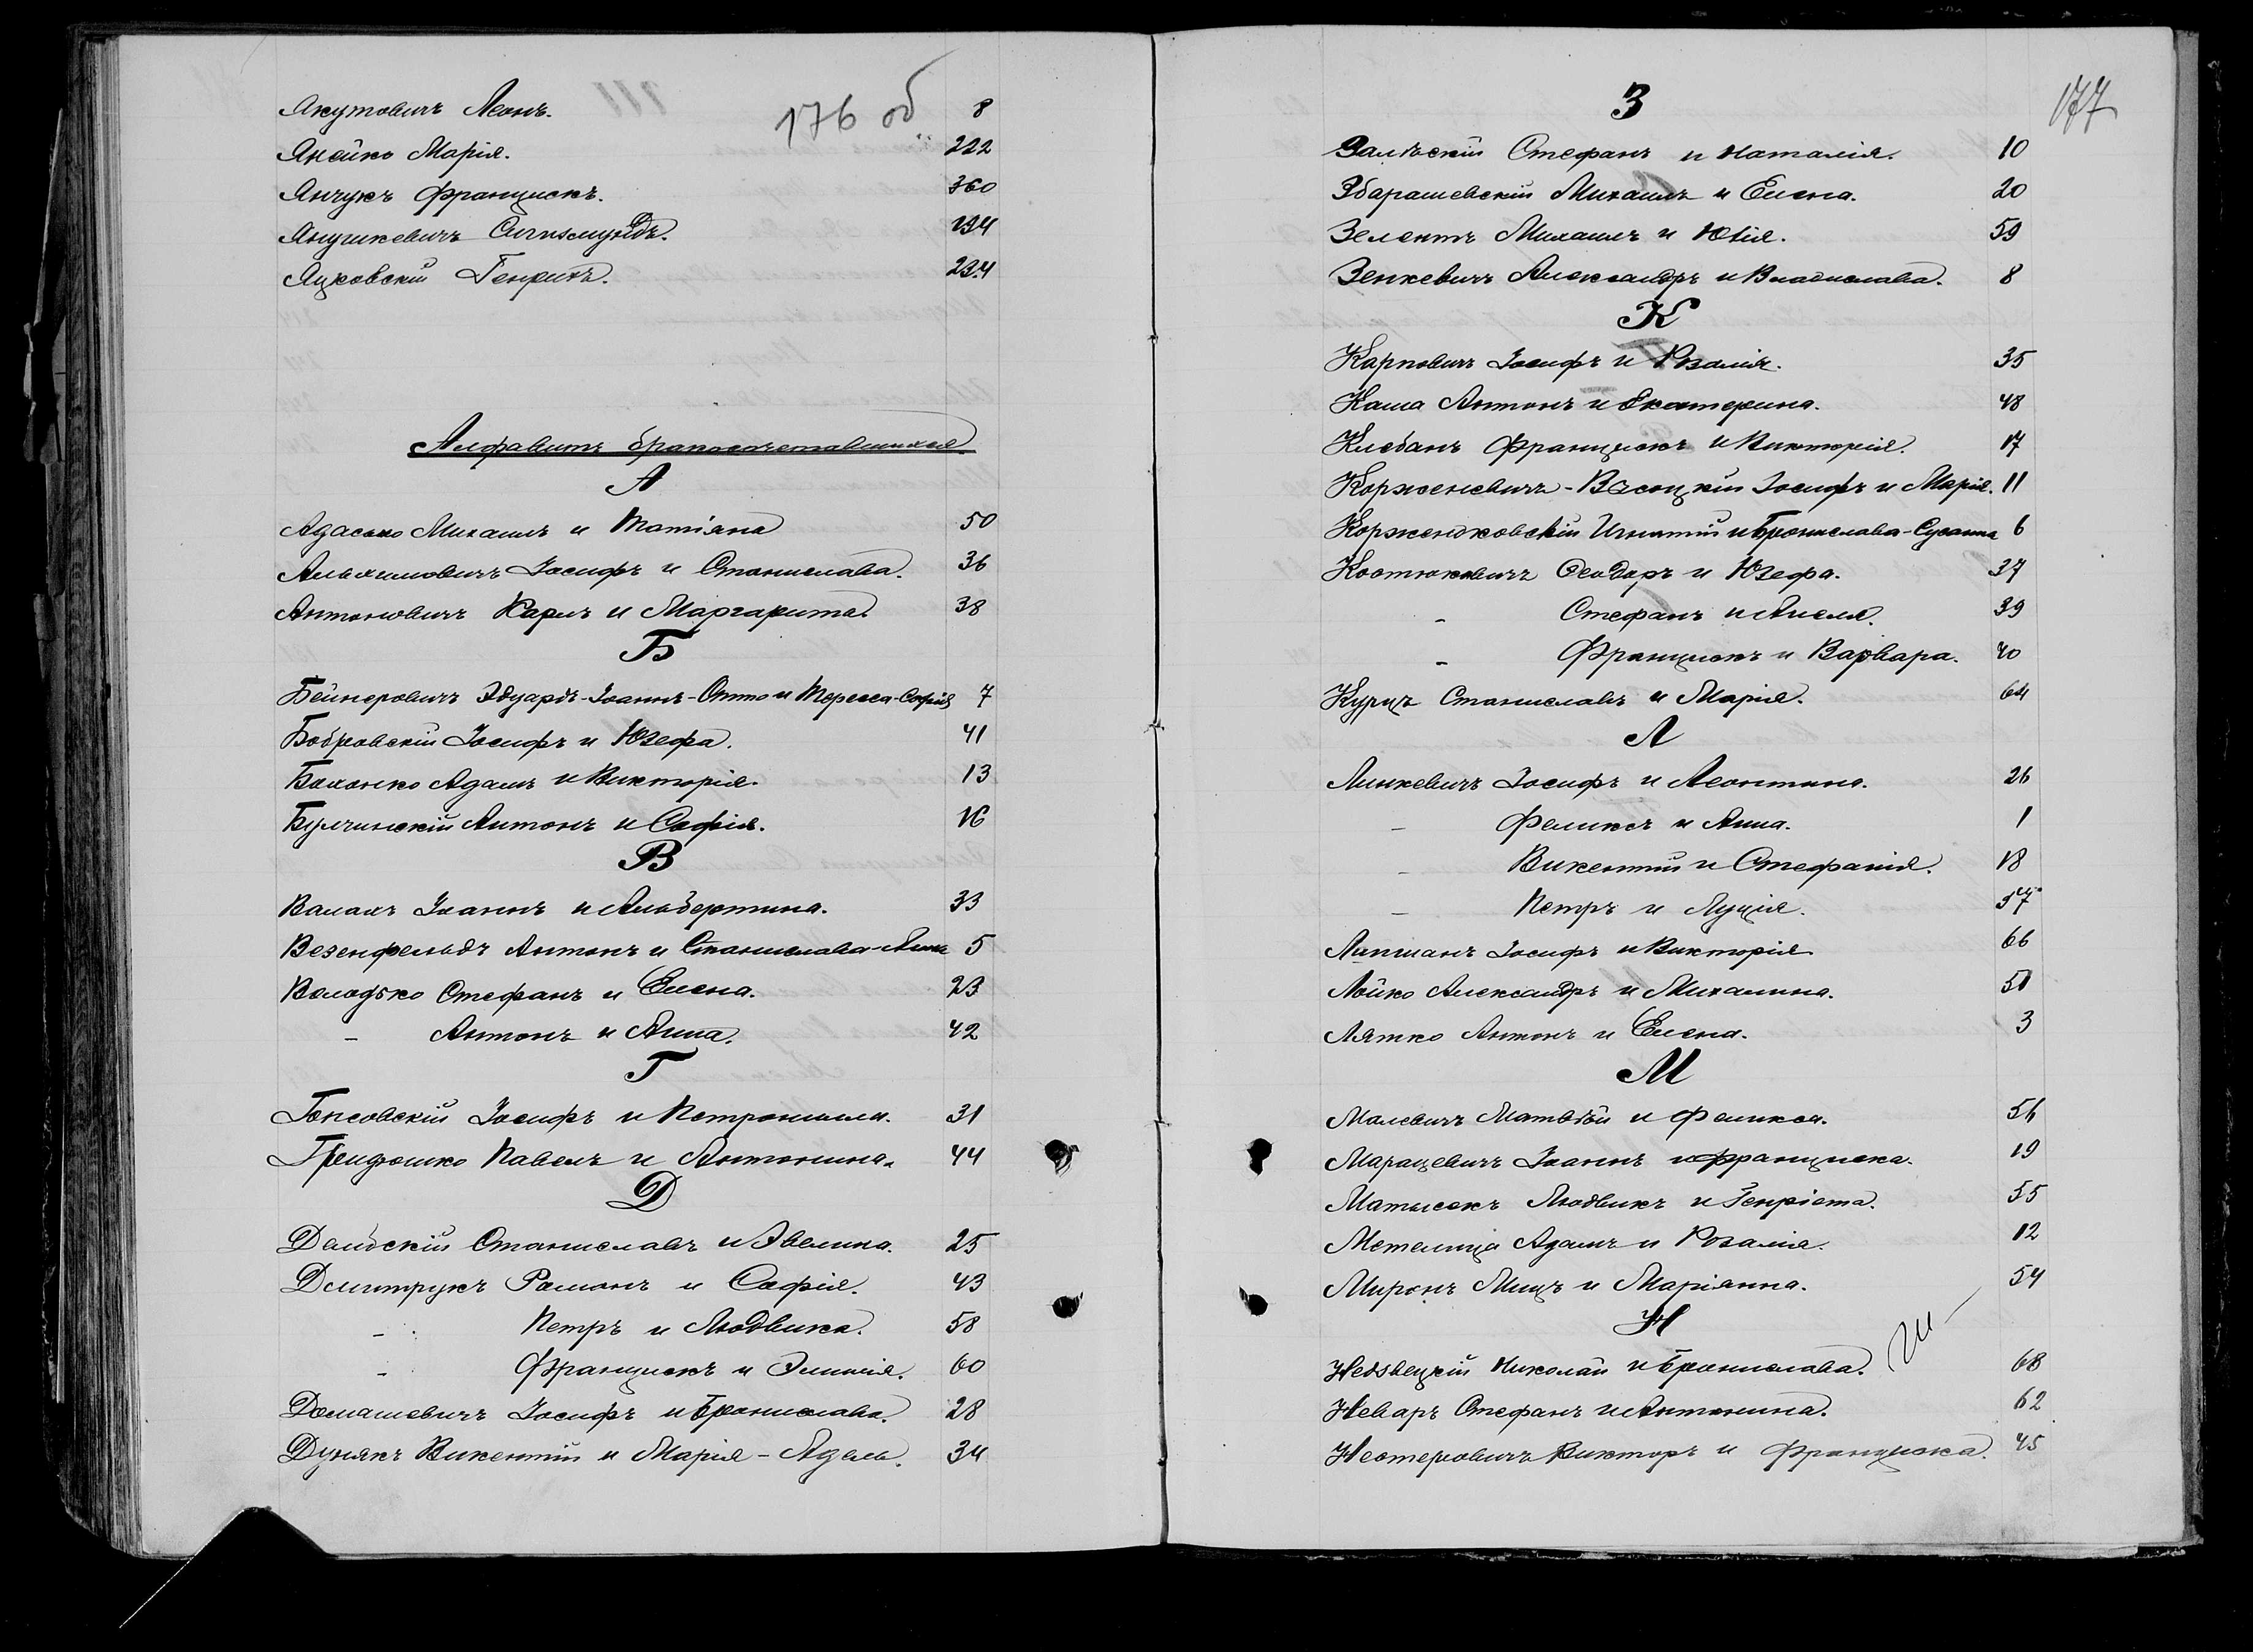 176 об
Якутовичъ Леонъ. 8
Янейко Марія. 222
Янчукъ Францискъ. 360
Янушкевичъ Сигизмундъ. 194
Яцковскій Генрихъ. 234
Алфавитъ бракосочетавшихся
А
Адасько Михаилъ и Татіана 50
Альхимовичъ Іосифъ и Станислава. 36
Антоновичъ Карлъ и Маргарита. 38
Б
Бейнеровичъ Эдуардъ-Іоаннъ-Отто и Тереса-Софія 7
Бобровскій Іосифъ и Юзефа. 41
Боханко Адамъ и Викторія. 13
Булчинскій Антонъ и Софія. 16
В
Валахъ Іоаннъ и Альбертина. 33
Везенфельдъ Антонъ и Станислава-Анна 5
Володько Стефанъ и Елена. 23
- Антонъ и Анна. 42
Г
Гонсовскій Іосифъ и Петронилла. 31
Грендюшко Павелъ и Антонина. 44
Д
Дембскій Станиславъ и Эвелина. 25
Дмитрукъ Романъ и Софія. 43
- Петръ и Людвика. 58
- Францискъ и Эмилія. 60
Домашевичъ Іосифъ и Бронислава. 28
Дунякъ Викентій и Марія-Адель. 34
177
З
Залѣскій Стефанъ и Наталія. 10
Збарашевскій Михаилъ и Елена. 20
Зелентъ Михаилъ и Юлія. 59
Зенкевичъ Александръ и Владислава. 8
К
Карповичъ Іосифъ и Розалія. 35
Каша Антонъ и Екатерина. 48
Клебанъ Францискъ и Викторія. 17
Корженевичъ-Высоцкій Іосифъ и Марія. 11
Корженковскій Игнатій и Бронислава-Сусанна 6
Костюковичъ Ѳеодоръ и Юзефа. 37
- Стефанъ и Анеля. 39
- Францискъ и Варвара. 40
Курцъ Станиславъ и Марія. 64
Л
Линкевичъ Іосифъ и Леонтина. 26
- Феликсъ и Анна. 1
- Викентій и Стефанія. 18
- Петръ и Луція. 57
Липманъ Іосифъ и Викторія 66
Лойко Александръ и Михалина. 51
Лятко Антонъ и Елена. 3
М
Малевичъ Матвѣй и Феликса. 56
Марацевичъ Іоаннъ и Франциска. 19
Матысекъ Людвикъ и Генріета. 55
Метелица Адамъ и Розалія. 12
Миронъ Мицъ и Маріанна. 54
Н
Недзвецкій Николай и Бронислава. 68
Неваръ Стефанъ и Антонина. 62
Нестеровичъ Викторъ и Франциска. 45